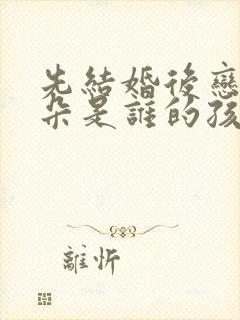 先結婚後戀
朵是誰的孩
離忻